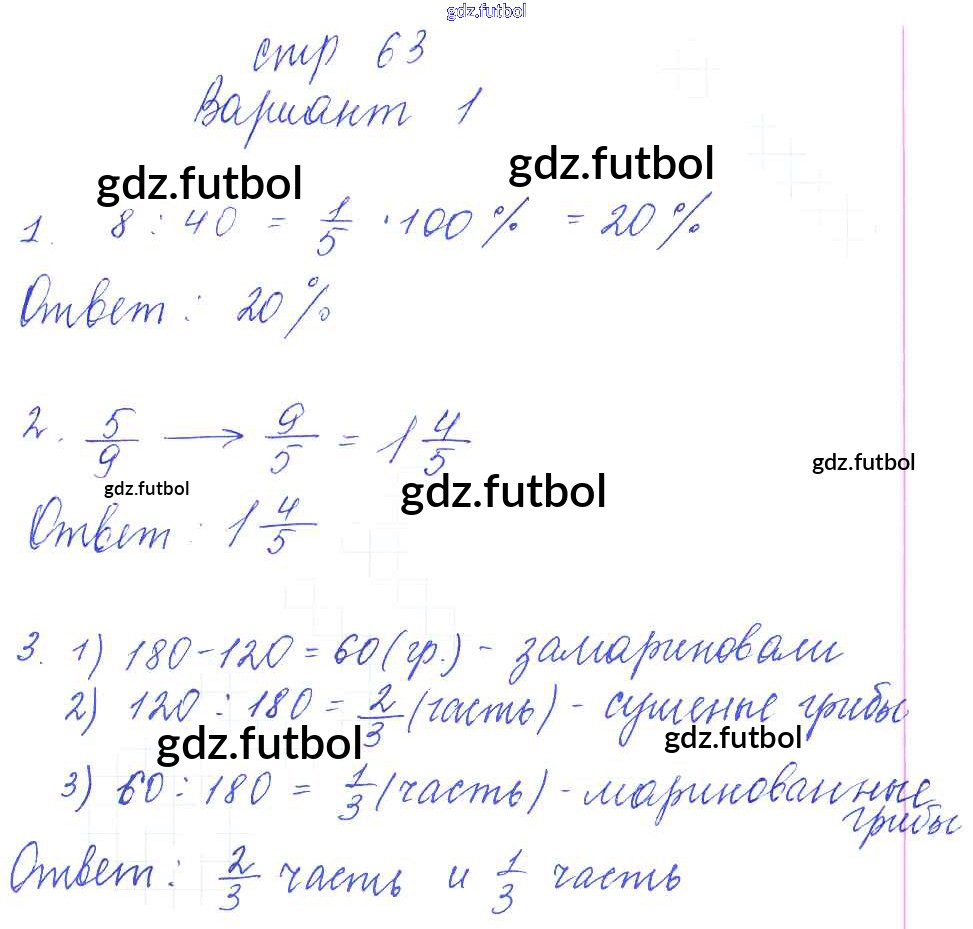 gdz.futbol
стр 63
Вариант 1
gdz.futbol gdz.futbol
1. 8 : 40 = 1/5 · 100% = 20%
Ответ: 20%
2. 5/9 → 9/5 = 1 4/5
gdz.futbol gdz.futbol gdz.futbol
Ответ: 1 4/5
3. 1) 180 - 120 = 60 (гр.) - замариновали
2) 120 : 180 = 2/3 (часть) - сушеные грибы
gdz.futbol gdz.futbol
3) 60 : 180 = 1/3 (часть) - маринованные
грибы
Ответ: 2/3 часть и 1/3 часть